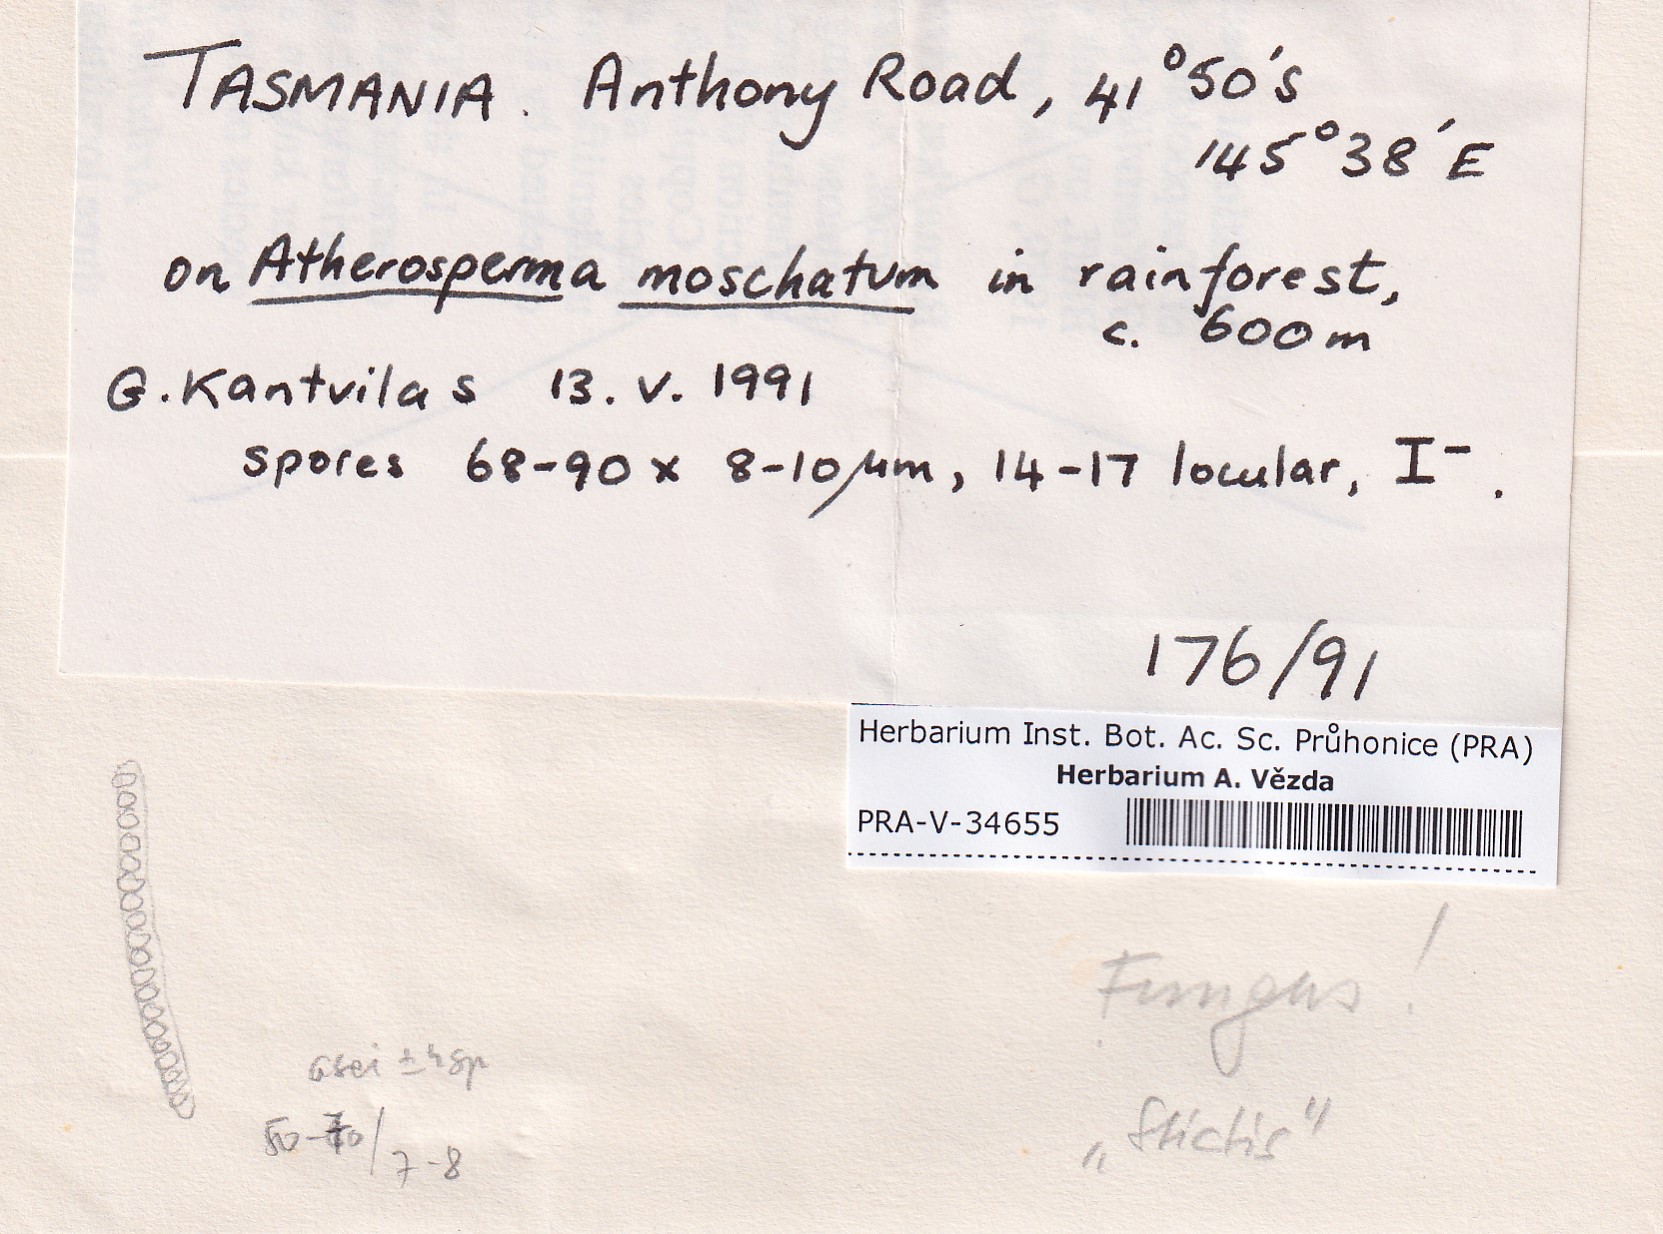 TASMANIA. Anthony Road, 41°50's
145°38'E
on Atherosperma moschatum in rainforest,
c. 600m
G. Kantvilas 13. V. 1991
spores 68-90 x 8-10 µm, 14-17 locular, I-.
176/91
Herbarium Inst. Bot. Ac. Sc. Průhonice (PRA)
Herbarium A. Vězda
PRA-V-34655
Fungus!
asci ± 4 sp
50-70/7-8
„Stictis"